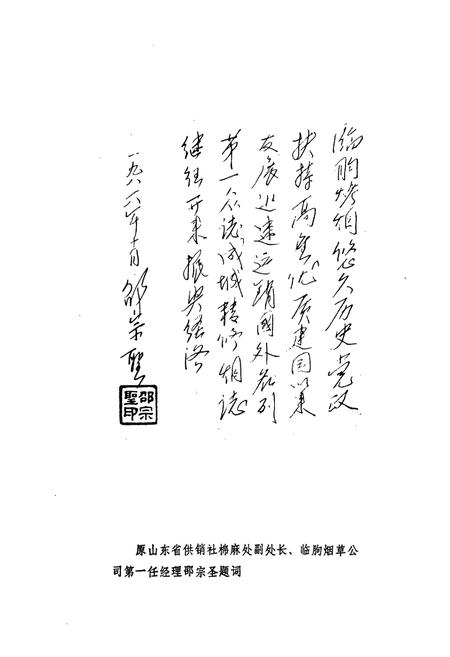 临朐烤烟悠久历史党政
扶持高produce优质建国以来
发展迅速运销国外名列
第一众志成城精修烟志
继往开来振兴经济
一九八六年十月 邵宗聖
邵宗聖印
原山东省供销社棉麻处副处长、临朐烟草公
司第一任经理邵宗圣题词